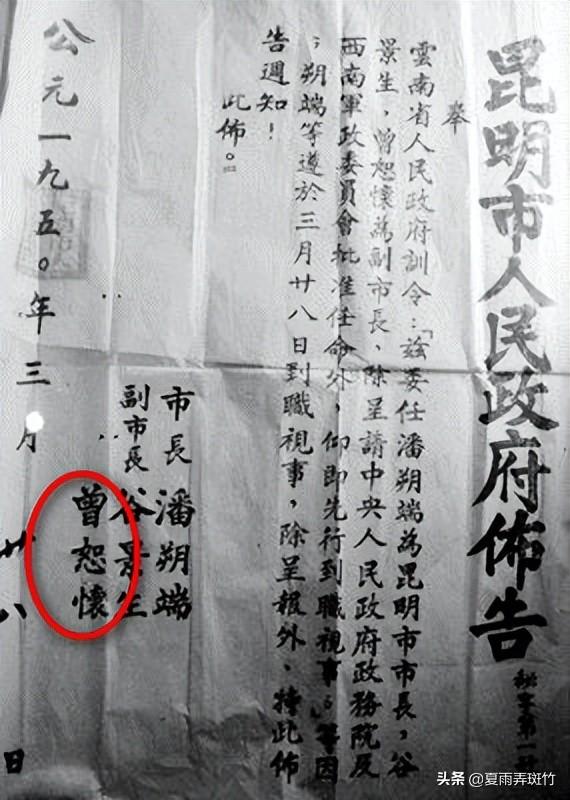 昆明市人民政府佈告
秘字第一
奉
雲南省人民政府訓令：「兹委任潘朔端為昆明市市長，谷
景生，曾恕懷為副市長，除呈請中央人民政府政務院及
西南軍政委員會批准任命外，仰即先行到職視事。」等因
；朔端等遵於三月廿八日到職視事，除呈報外，特此佈
告週知！
此佈。
市長 潘朔端
副市長 谷景生
曾恕懷
公元一九五〇年三月廿八日
头条 @夏雨弄斑竹